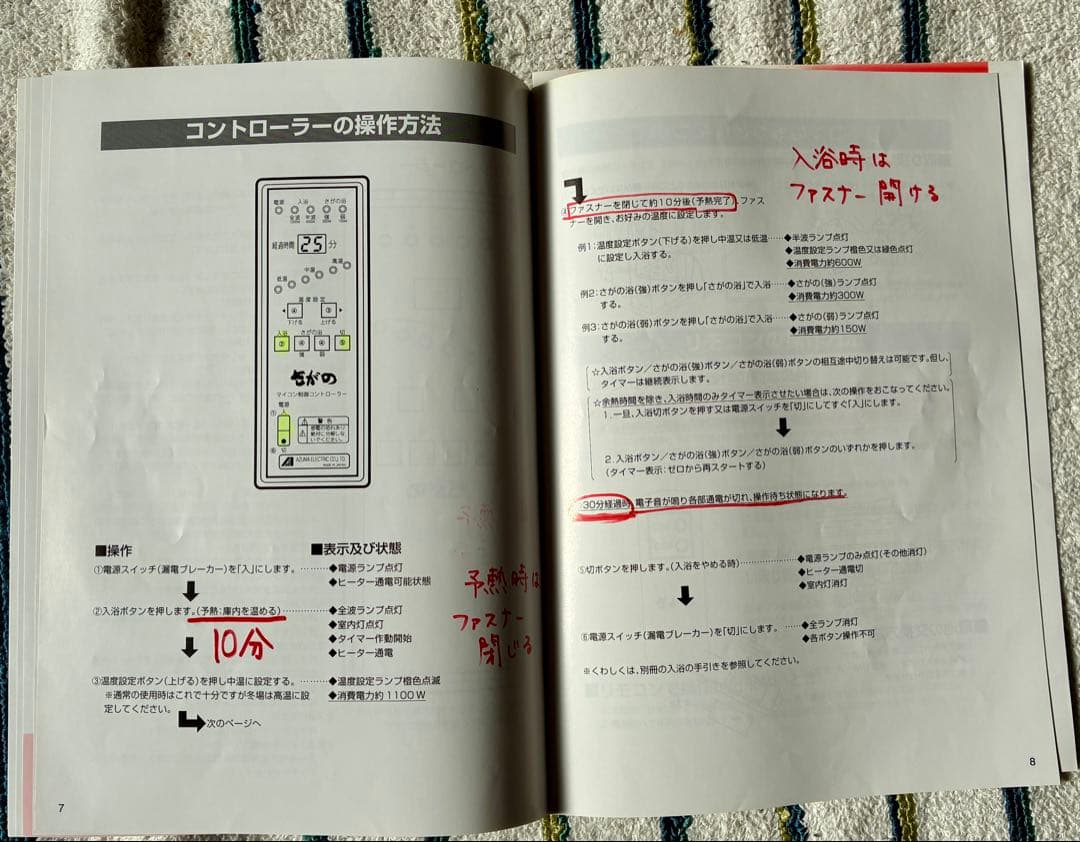 コントローラーの操作方法
電源 入浴 さがの浴
全波 半波 強 弱
経過時間 25 分
低温 中温 高温
温度設定
④ ③
下げる 上げる
入浴 さがの浴 切
② ④ ④ ⑤
強 弱
さがの
マイコン制御コントローラー
電源
①入
警告
⑥切
AZUMA ELECTRIC CO., LTD.
MADE IN JAPAN
■操作 ■表示及び状態
①電源スイッチ(漏電ブレーカー)を「入」にします。 ◆電源ランプ点灯
◆ヒーター通電可能状態
②入浴ボタンを押します。(予熱:庫内を温める) ◆全波ランプ点灯
◆室内灯点灯
10分 ◆タイマー作動開始
◆ヒーター通電
予熱時は
ファスナー
閉じる
③温度設定ボタン(上げる)を押し中温に設定する。 ◆温度設定ランプ橙色点滅
※通常の使用時はこれで十分ですが冬場は高温に設 ◆消費電力約1100W
定してください。
次のページへ
7
入浴時は
ファスナー開ける
④ファスナーを閉じて約10分後(予熱完了)、ファス
ナーを開き、お好みの温度に設定します。
例1:温度設定ボタン(下げる)を押し中温又は低温……◆半波ランプ点灯
に設定し入浴する。 ◆温度設定ランプ橙色又は緑色点灯
◆消費電力約600W
例2:さがの浴(強)ボタンを押し「さがの浴」で入浴……◆さがの(強)ランプ点灯
する。 ◆消費電力約300W
例3:さがの浴(弱)ボタンを押し「さがの浴」で入浴……◆さがの(弱)ランプ点灯
する。 ◆消費電力約150W
☆入浴ボタン/さがの浴(強)ボタン/さがの浴(弱)ボタンの相互途中切り替えは可能です。但し、
タイマーは継続表示します。
☆余熱時間を除き、入浴時間のみタイマー表示させたい場合は、次の操作をおこなってください。
1.一旦、入浴切ボタンを押す又は電源スイッチを「切」にしてすぐ「入」にします。
2.入浴ボタン/さがの浴(強)ボタン/さがの浴(弱)ボタンのいずれかを押します。
(タイマー表示:ゼロから再スタートする)
30分経過時、電子音が鳴り各部通電が切れ、操作待ち状態になります。
⑤切ボタンを押します。(入浴をやめる時) ◆電源ランプのみ点灯(その他消灯)
◆ヒーター通電切
◆室内灯消灯
⑥電源スイッチ(漏電ブレーカー)を「切」にします。 ◆全ランプ消灯
◆各ボタン操作不可
※くわしくは、別冊の入浴の手引きを参照してください。
8